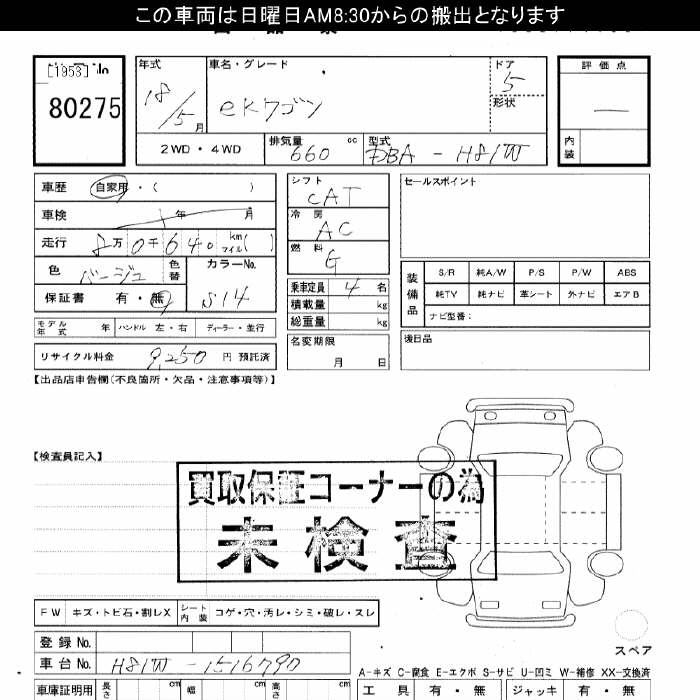 この車両は日曜日AM8:30からの搬出となります
[1953] No
80275
年式
18/5月
車名・グレード
eKワゴン
ドア
5
形状
評価点
—
内装
2WD・4WD
排気量 660 cc
型式 DBA - H81W
車歴 自家用・( )
車検 年 月
走行 8万0千640 km マイル( )
色 ベージュ 色替
カラーNo. S14
保証書 有・無
モデル年式 年 ハンドル 左・右 ディーラー・並行
リサイクル料金 9,250 円 預託済
シフト
CAT
冷房
AC
燃料
G
乗車定員 4 名
積載量 kg
総重量 kg
名変期限
月 日
セールスポイント
装備品
S/R 純A/W P/S P/W ABS
純TV 純ナビ 革シート 外ナビ エアB
ナビ型番:
後日品
【出品店申告欄(不良箇所・欠品・注意事項等)】
【検査員記入】
買取保証コーナーの為
未検査
FW キズ・トビ石・割レX シート内装 コゲ・穴・汚レ・シミ・破レ・スレ
スペア
登録No.
車台No. H81W-1516790
A-キズ C-腐食 E-エクボ S-サビ U-凹ミ W-補修 XX-交換済
車庫証明用 長さ cm 幅 cm 高さ cm
工具 有・無 ジャッキ 有・無